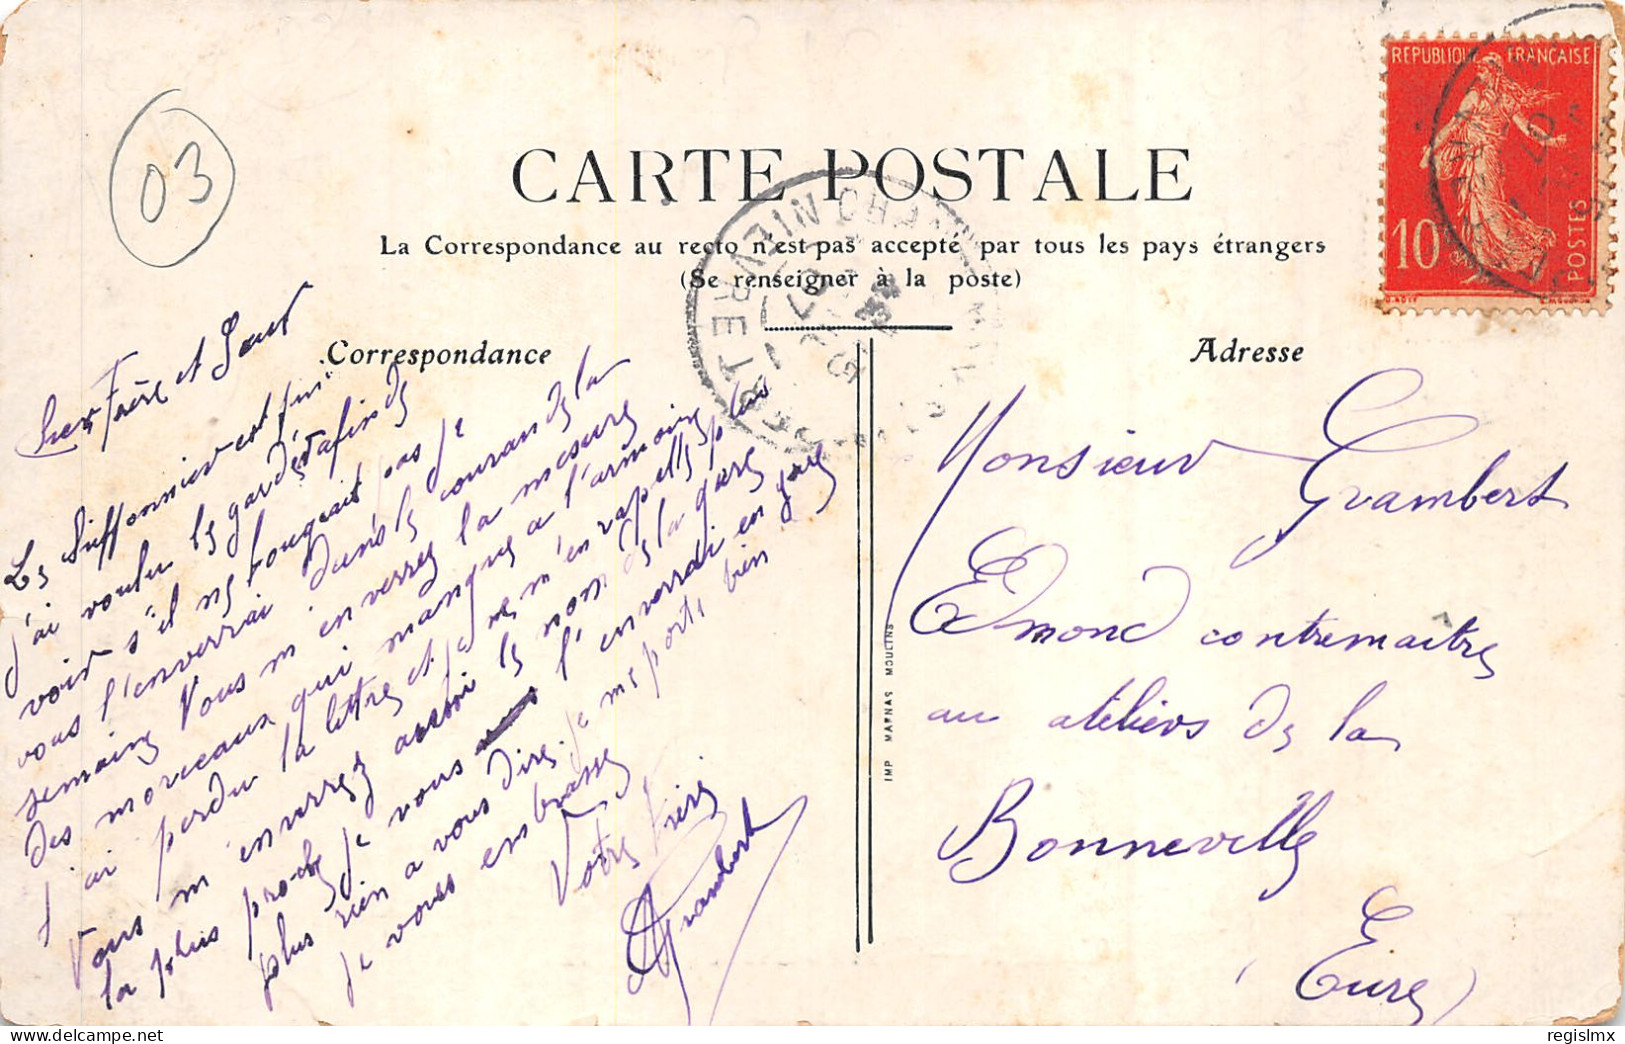 03
REPUBLIQUE FRANÇAISE
10
POSTES
CARTE POSTALE
La Correspondance au recto n'est pas accepté par tous les pays étrangers
(Se renseigner à la poste)
Correspondance
Adresse
Cher Frère et Sœur
Le Siffonnier est fini
j'ai voulu le garder afin de
voir s'il ne bougeait pas je
vous l'enverrai dans le courant de la
semaine Vous m'enverrez la mesure
des morceaux qui manque a l'armoire
j'ai perdu la lettre et je ne m'en rapelle plus
Vous m'enverrez aussi le nom de la gare
la plus proche je vous l'enverrai en gare
plus rien a vous dire je me porte bien
je vous embrasse
Votre Frère
Grambert
Monsieur Grambert
Edmond contremaitre
au ateliers de la
Bonneville
(Eure)
IMP MARNAS MOULINS
regislmx